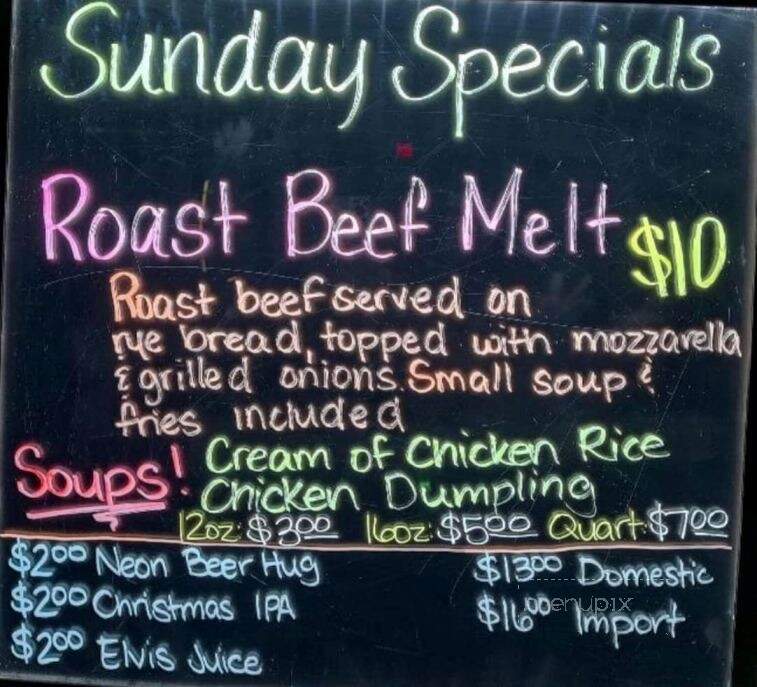 Sunday Specials
Roast Beef Melt $10
Roast beef served on
rye bread, topped with mozzarella
& grilled onions. Small soup &
fries included
Soups! Cream of Chicken Rice
Chicken Dumpling
12oz: $3.00 16oz: $5.00 Quart: $7.00
$2.00 Neon Beer Hug $13.00 Domestic
$2.00 Christmas IPA $16.00 Import
$2.00 Elvis Juice
menupix